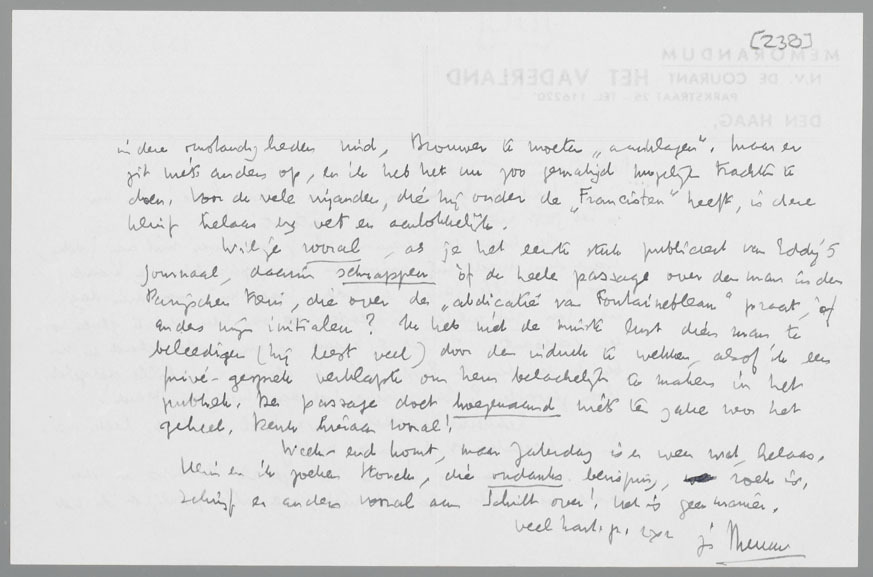 [238]
MEMORANDUM
N.V. DE COURANT HET VADERLAND
PARKSTRAAT 25 - TEL. 116220
DEN HAAG,
in deze omstandigheden niet, Brouwer te moeten „aanklagen". Maar er
zit niets anders op, en ik heb het nu zoo gematigd mogelijk trachten te
doen. Voor de vele vijanden, die hij onder de „Francisten" heeft, is deze
kluif helaas erg vet en aanlokkelijk.
Wil je vooral, als je het eerste stuk publiceert van Eddy's
journaal, daarin schrappen òf de heele passage over den man in den
Parijschen trein, die over de „abdicatie van Fontainebleau" praat, òf
anders mijn initialen? Ik heb niet de minste lust dien man te
beleedigen (hij leest veel) door den indruk te wekken, alsof ik een
privé-gesprek verklapte om hem belachelijk te maken in het
publiek. De passage doet hoegenaamd niets ter zake voor het
geheel. Denk hieraan vooral!
Week-end komt, maar Zaterdag is er weer wat, helaas.
en ik zoeken Storck, die ondanks, zoek is.
Schrijf er anders vooral aan Schilt over! Het is geen manier.
veel hart. gr.  je Menno